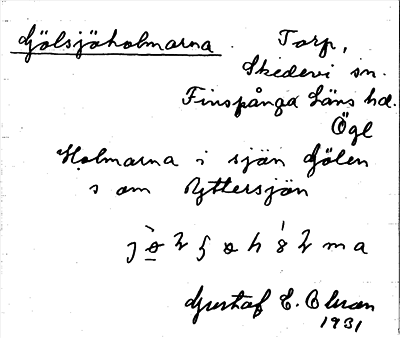 Gölsjöholmarna Torp,
Skedevi sn.
Finspånga Läns hd.
Ögl
Holmarna i sjön Gölen
som Yttersjön
Gustaf E. Olsson
1931